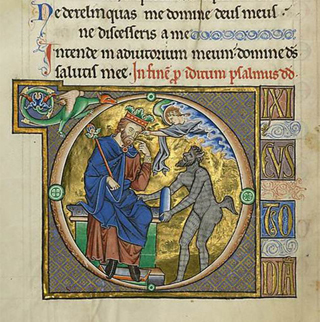 Ne derelinquas me domine deus meus
ne discesseris a me
Intende in adiutorium meum: domine ds̄
salutis mee. In finē p̄ iditum psalmus dd.
D
IXI
VS
TO
DIA